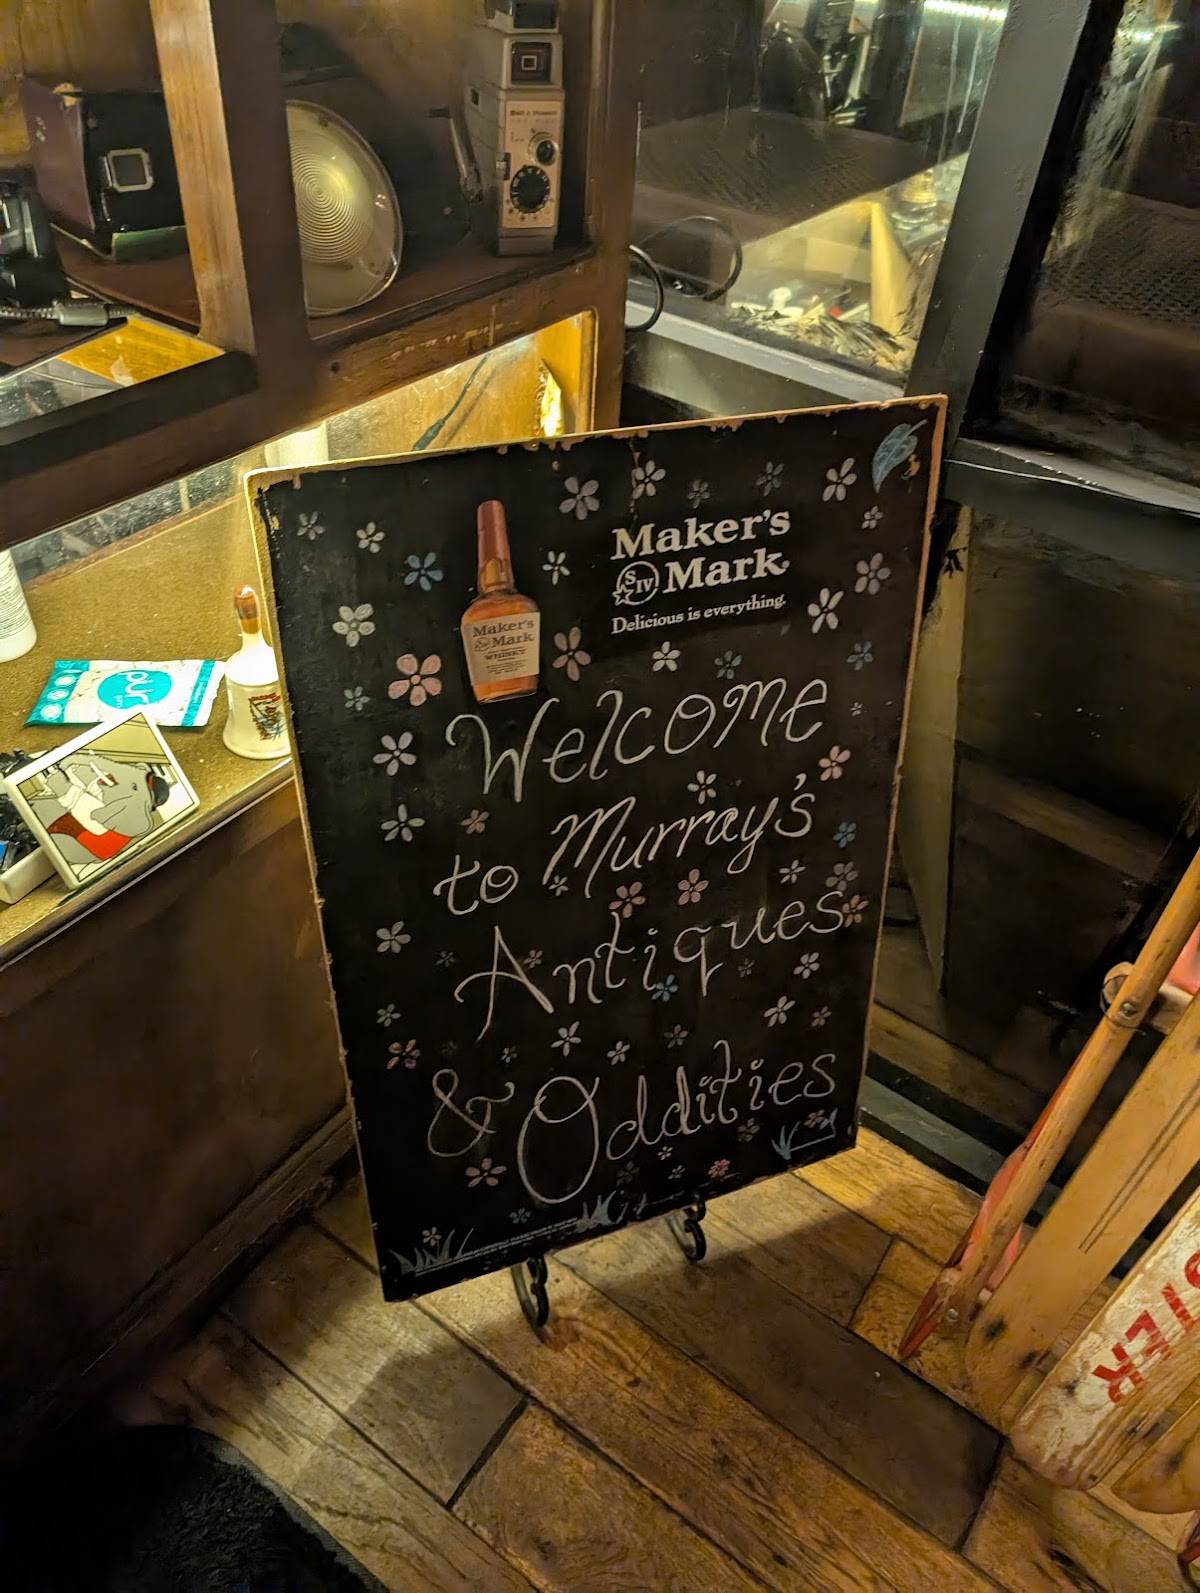 Bell & Howell
Maker's
SIV Mark
Delicious is everything.
Maker's
Mark
WHISKY
Welcome
to Murray's
Antiques
& Oddities
pur